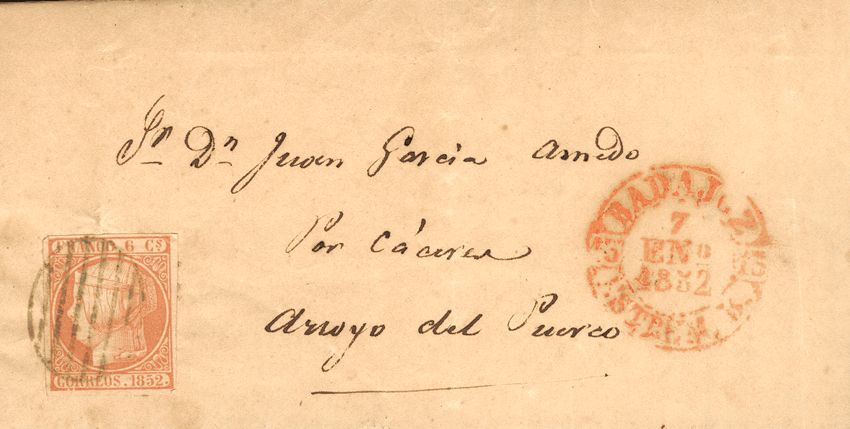 Sr. Dn Juan Garcia Amedo
Por Cáceres
Arroyo del Puerco
FRANCO. 6 Cs
CORREOS. 1852.
BADAJOZ
7
ENO
1852
ESTREM.